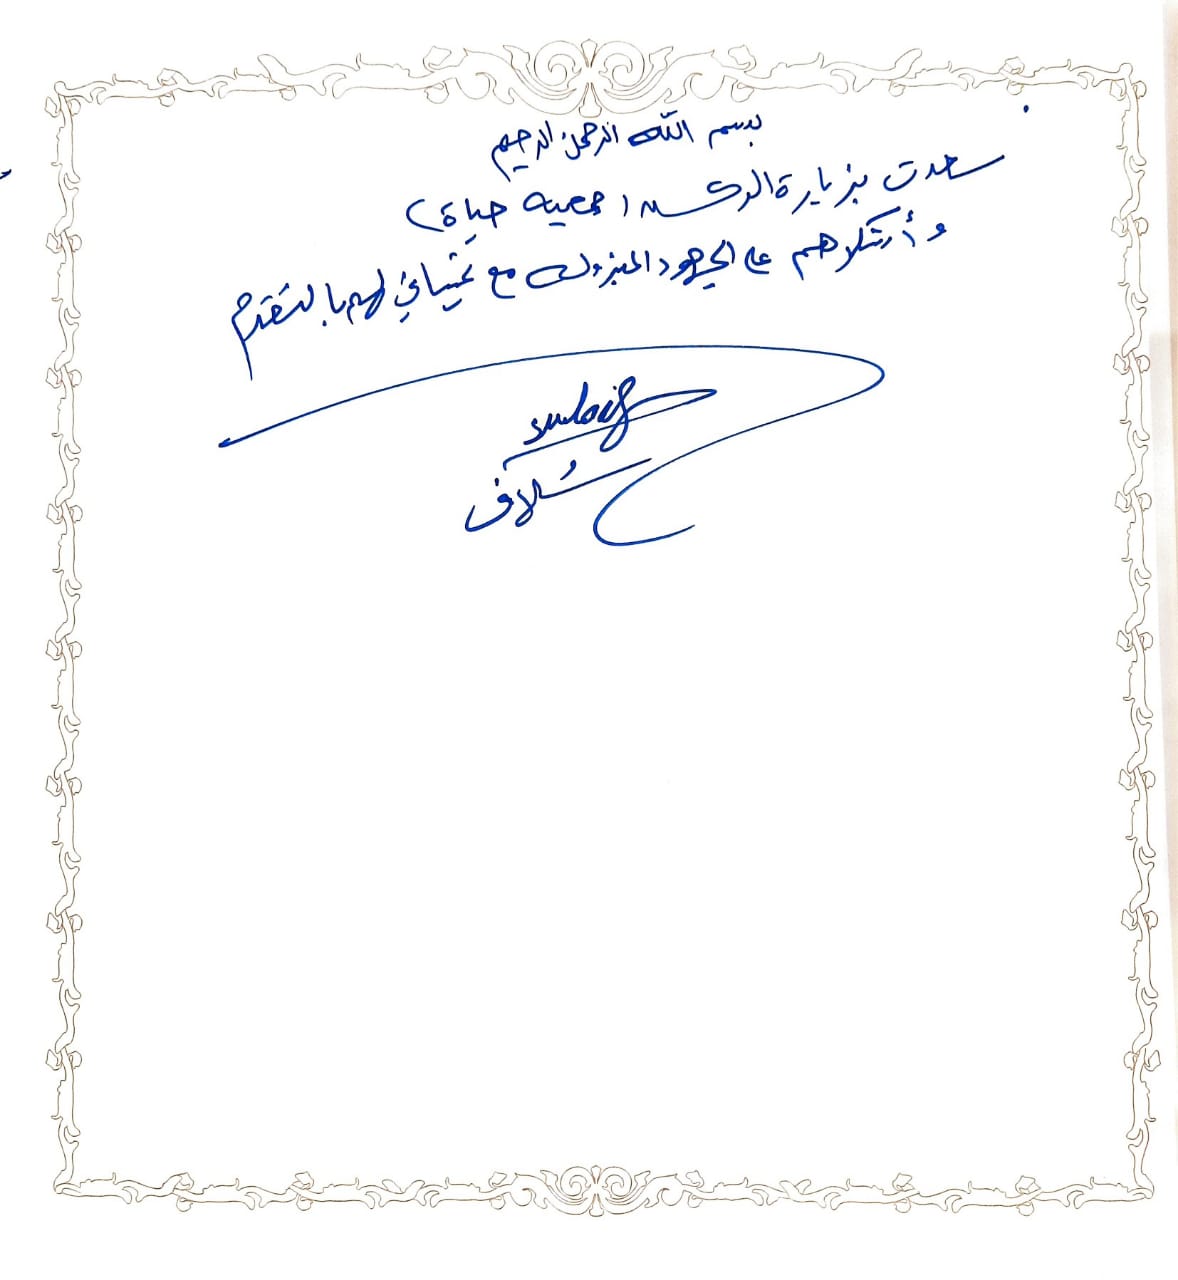 بسم الله الرحمن الرحيم
سعدت بزيارة الركن (جمعية حياة)
و أشكرهم على الجهود المبذولة مع تمنياتي لهم بالتقدم
sulaif
سُلاف